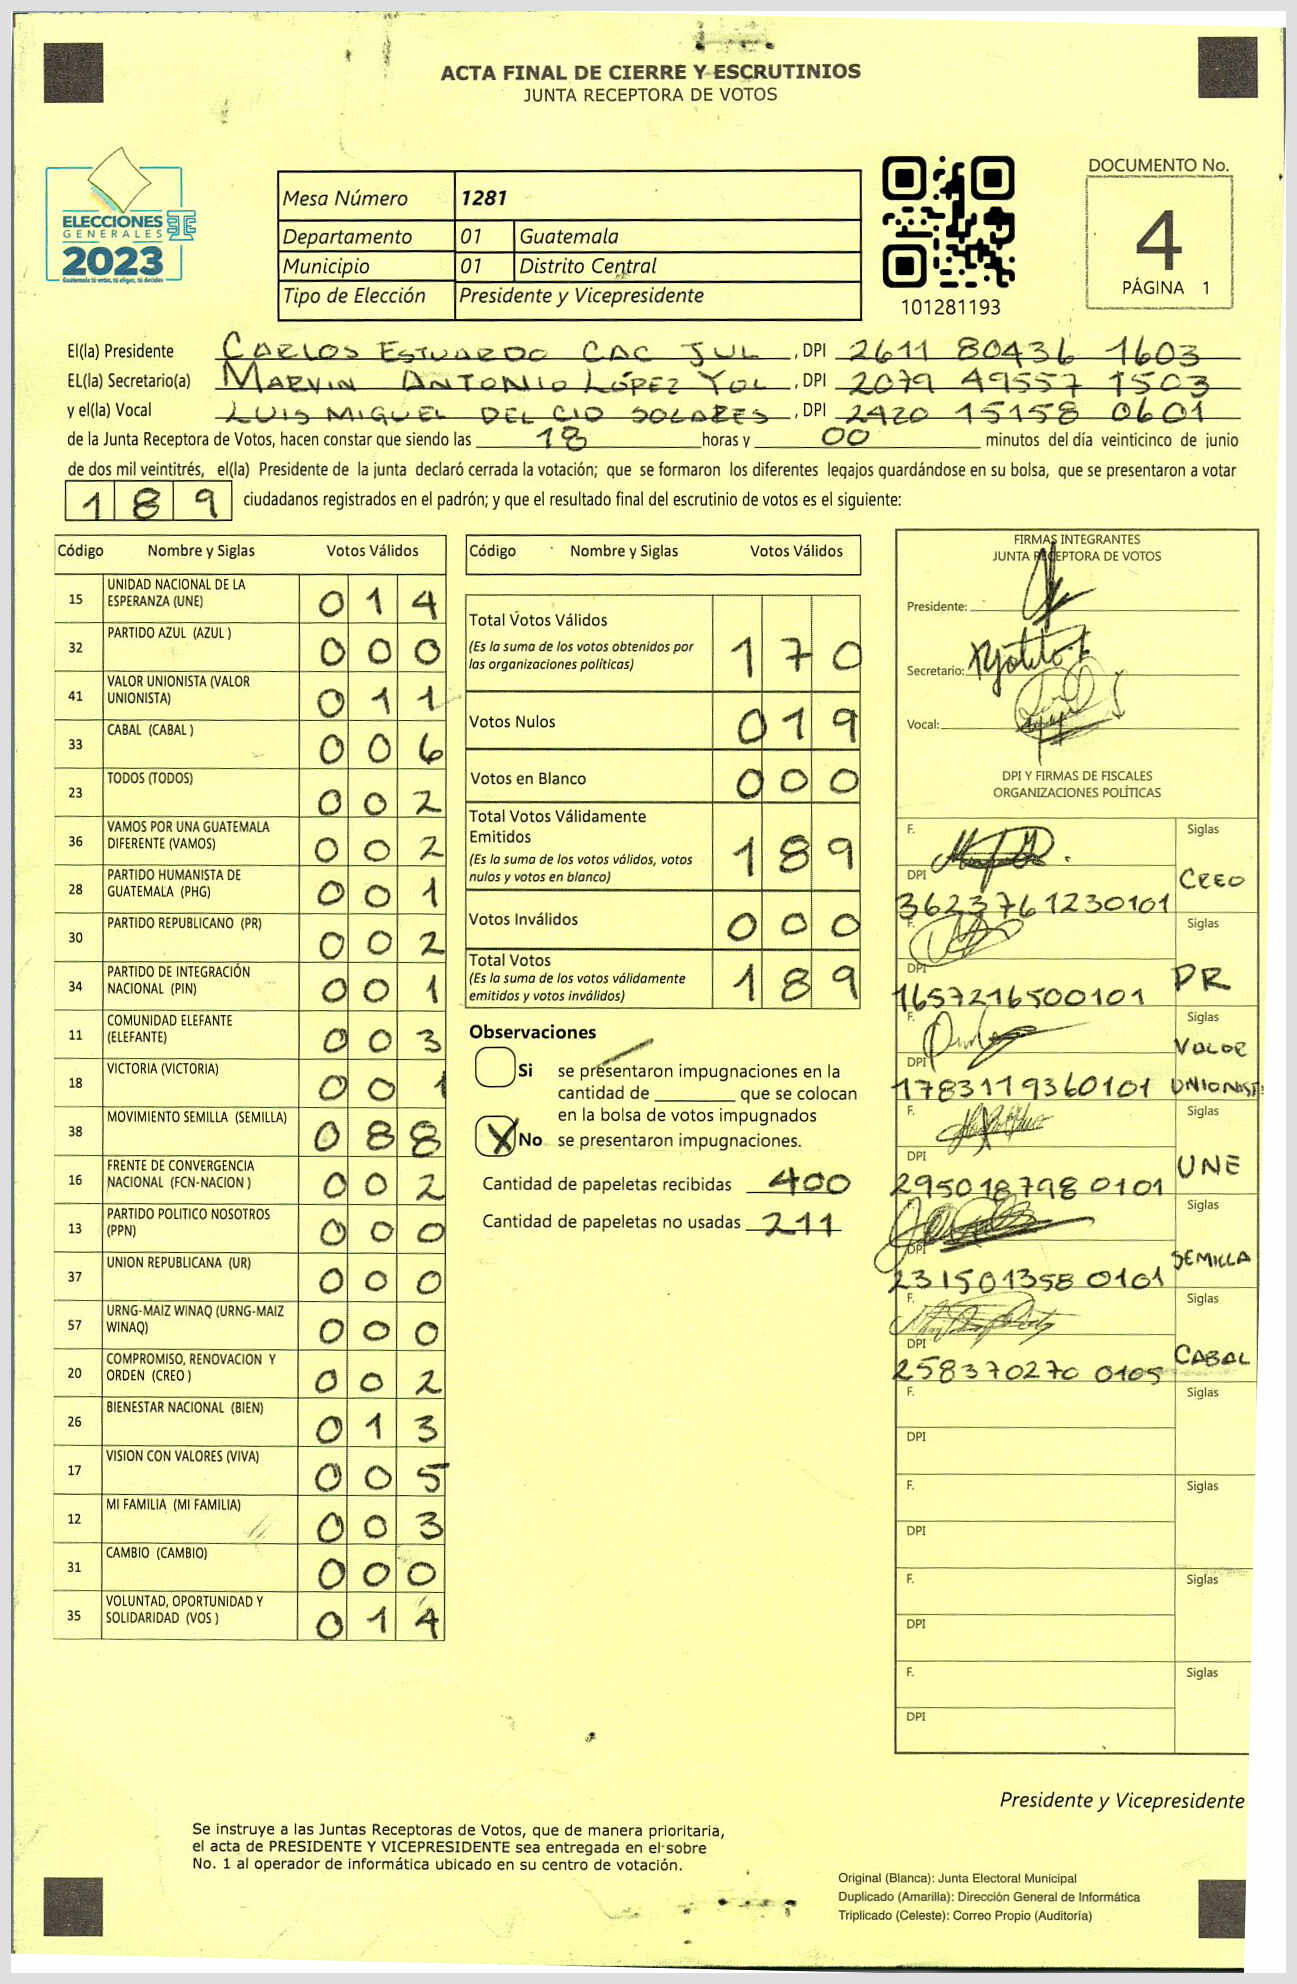 ACTA FINAL DE CIERRE Y ESCRUTINIOS
JUNTA RECEPTORA DE VOTOS
ELECCIONES
GENERALES
2023
Mesa Número 1281
Departamento 01 Guatemala
Municipio 01 Distrito Central
Tipo de Elección Presidente y Vicepresidente
101281193
DOCUMENTO No.
4
PÁGINA 1
El(la) Presidente CARLOS ESTUARDO CAC JUL, DPI 2611 80436 1603
EL(la) Secretario(a) MARVIN ANTONIO LÓPEZ YOL, DPI 2079 49557 1503
y el(la) Vocal LUIS MIGUEL DEL CID SOLARES, DPI 2420 15158 0601
de la Junta Receptora de Votos, hacen constar que siendo las 18 horas y 00 minutos del día veinticinco de junio
de dos mil veintitrés, el(la) Presidente de la junta declaró cerrada la votación; que se formaron los diferentes legajos guardándose en su bolsa, que se presentaron a votar
189 ciudadanos registrados en el padrón; y que el resultado final del escrutinio de votos es el siguiente:
Código Nombre y Siglas Votos Válidos
15 UNIDAD NACIONAL DE LA ESPERANZA (UNE) 014
32 PARTIDO AZUL (AZUL ) 000
41 VALOR UNIONISTA (VALOR UNIONISTA) 011
33 CABAL (CABAL ) 006
23 TODOS (TODOS) 002
36 VAMOS POR UNA GUATEMALA DIFERENTE (VAMOS) 002
28 PARTIDO HUMANISTA DE GUATEMALA (PHG) 001
30 PARTIDO REPUBLICANO (PR) 002
34 PARTIDO DE INTEGRACIÓN NACIONAL (PIN) 001
11 COMUNIDAD ELEFANTE (ELEFANTE) 003
18 VICTORIA (VICTORIA) 001
38 MOVIMIENTO SEMILLA (SEMILLA) 088
16 FRENTE DE CONVERGENCIA NACIONAL (FCN-NACION ) 002
13 PARTIDO POLITICO NOSOTROS (PPN) 000
37 UNION REPUBLICANA (UR) 000
57 URNG-MAIZ WINAQ (URNG-MAIZ WINAQ) 000
20 COMPROMISO, RENOVACION Y ORDEN (CREO ) 002
26 BIENESTAR NACIONAL (BIEN) 013
17 VISION CON VALORES (VIVA) 005
12 MI FAMILIA (MI FAMILIA) 003
31 CAMBIO (CAMBIO) 000
35 VOLUNTAD, OPORTUNIDAD Y SOLIDARIDAD (VOS ) 014
Código Nombre y Siglas Votos Válidos
Total Votos Válidos 170
(Es la suma de los votos obtenidos por
las organizaciones políticas)
Votos Nulos 019
Votos en Blanco 000
Total Votos Válidamente
Emitidos 189
(Es la suma de los votos válidos, votos
nulos y votos en blanco)
Votos Inválidos 000
Total Votos 189
(Es la suma de los votos válidamente
emitidos y votos inválidos)
Observaciones
Si se presentaron impugnaciones en la
cantidad de que se colocan
en la bolsa de votos impugnados
X No se presentaron impugnaciones.
Cantidad de papeletas recibidas 400
Cantidad de papeletas no usadas 211
FIRMAS INTEGRANTES
JUNTA RECEPTORA DE VOTOS
Presidente:
Secretario:
Vocal:
DPI Y FIRMAS DE FISCALES
ORGANIZACIONES POLÍTICAS
F. Siglas
DPI CREO
3623761230101
F. Siglas
DPI PR
1657216500101
F. Siglas
VALOR
DPI
1783119360101 UNIONIST
F. Siglas
DPI UNE
2950187980101
F. Siglas
DPI SEMILLA
2315013580101
F. Siglas
DPI CABAL
258370270 0105
F. Siglas
DPI
F. Siglas
DPI
F. Siglas
DPI
F. Siglas
DPI
Presidente y Vicepresidente
Se instruye a las Juntas Receptoras de Votos, que de manera prioritaria,
el acta de PRESIDENTE Y VICEPRESIDENTE sea entregada en el sobre
No. 1 al operador de informática ubicado en su centro de votación.
Original (Blanca): Junta Electoral Municipal
Duplicado (Amarilla): Dirección General de Informática
Triplicado (Celeste): Correo Propio (Auditoría)